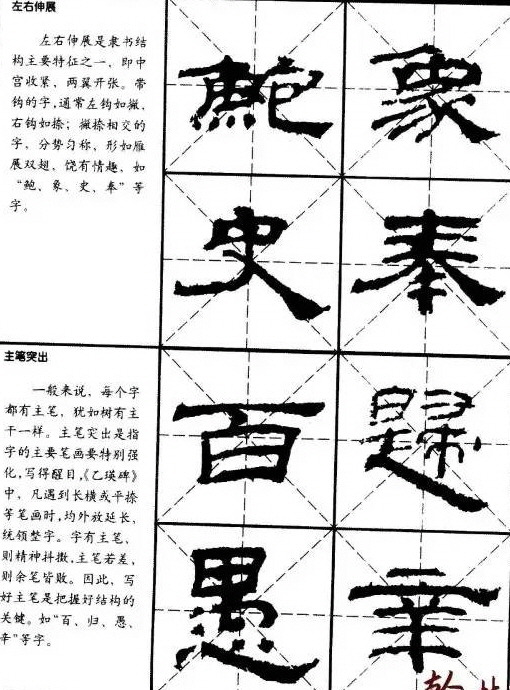 左右伸展
左右伸展是隶书结
构主要特征之一，即中
宫收紧，两翼开张。带
钩的字，通常左钩如撇，
右钩如捺；撇捺相交的
字，分势匀称，形如雁
展双翅，饶有情趣，如
“鲍、象、史、奉”等
字。
鲍 象
史 奉
主笔突出
一般来说，每个字
都有主笔，犹如树有主
干一样。主笔突出是指
字的主要笔画要特别强
化，写得醒目，《乙瑛碑》
中，凡遇到长横或平捺
等笔画时，均外放延长，
统领整字。字有主笔，
则精神抖擞，主笔若差，
则余笔皆败。因此，写
好主笔是把握好结构的
关键。如“百、归、愚、
幸”等字。
百 歸
愚 幸